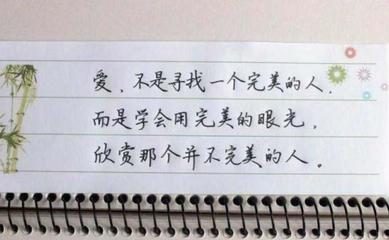 爱、不是寻找一个完美的人.
而是学会用完美的眼光，
欣赏那个并不完美的人。